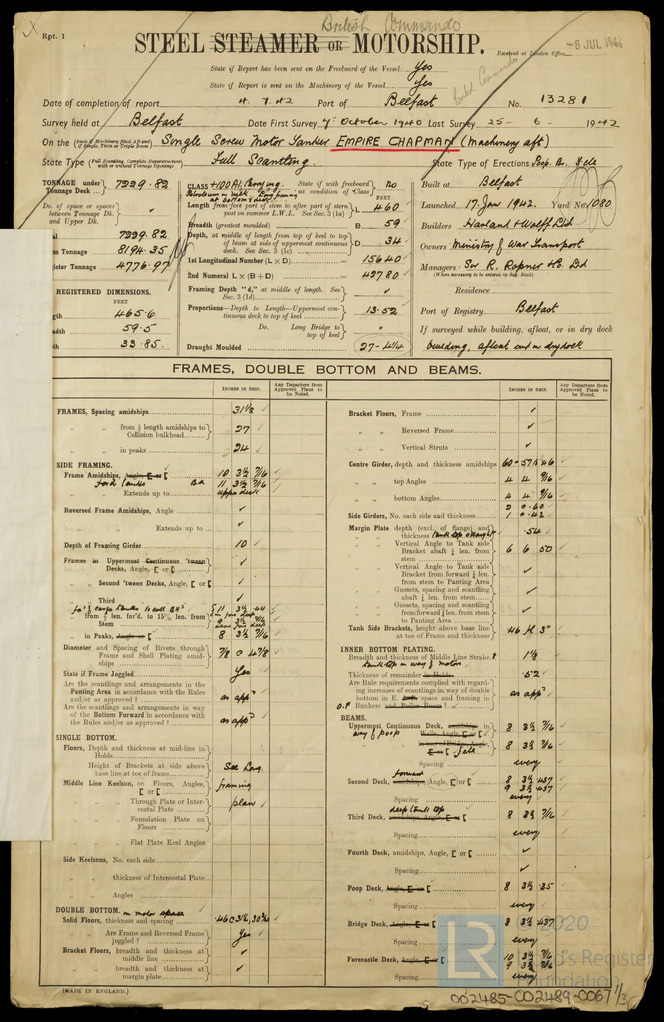 British Commando
Rpt. 1
STEEL STEAMER OR MOTORSHIP.
Received at London Office
-8 JUL 1942
State if Report has been sent on the Freeboard of the Vessel Yes
State if Report is sent on the Machinery of the Vessel Yes
Date of completion of report 4.7.42 Port of Belfast No. 13281
Survey held at Belfast Date First Survey 7th October 1940 Last Survey 25-6-1942
On the Single Screw Motor Tanker EMPIRE CHAPMAN (Machinery aft)
State Type Full Scantling State Type of Erections Poop. B. Fcle
TONNAGE under Tonnage Deck 7229.82
Do. of space or spaces between Tonnage Dk. and Upper Dk.
7229.82
Tonnage 8194.35
Tonnage 4776.97
REGISTERED DIMENSIONS.
FEET
465.6
59.5
33.85
CLASS +100A1. Carrying Petroleum in bulk
State if with freeboard as condition of Class No
Length from fore part of stem to after part of stern post on summer L.W.L. See Sec. 3 (1a) L 460
Breadth (greatest moulded) B 59
Depth, at middle of length from top of keel to top of beam at side of uppermost continuous deck. See Sec. 3 (1c) D 34
1st Longitudinal Number (L × D) 15640
2nd Numeral L × (B + D) 42780
Framing Depth "d," at middle of length. See Sec. 3 (1d)
Proportions—Depth to Length—Uppermost continuous deck to top of keel 13.52
Do. Long Bridge to top of keel
Draught Moulded 27-4 1/4
Built at Belfast
Launched 17. Jan 1942. Yard No. 1080
Builders Harland & Wolff Ltd
Owners Ministry of War Transport
Managers Sir R. Ropner & Co. Ltd
(Where necessary to be entered in Reg. Book)
Residence
Port of Registry Belfast
If surveyed while building, afloat, or in dry dock
building, afloat and in drydock
FRAMES, DOUBLE BOTTOM AND BEAMS.
INCHES IN SHIP.
Any Departure from Approved Plans to be Noted.
INCHES IN SHIP.
Any Departure from Approved Plans to be Noted.
FRAMES, Spacing amidships 31 1/2
from 1/5 length amidships to Collision bulkhead 27
in peaks 24
SIDE FRAMING.
Frame Amidships, Angle, [ or [ 10 3 1/2 7/16
Extends up to upper deck
Reversed Frame Amidships, Angle
Extends up to
Depth of Framing Girder 10
Frames in Uppermost Continuous 'tween Decks, Angle, [ or [
Second 'tween Decks, Angle, [ or [
Third
from 1/5 len. for'd. to 15% len. from Stem
in Peaks, Angle or [ 8 3 1/2 7/16
Diameter and Spacing of Rivets through Frame and Shell Plating amidships 7/8
State if Frame Joggled Yes
Are the scantlings and arrangements in the Panting Area in accordance with the Rules and/or as approved? as app'd
Are the scantlings and arrangements in way of the Bottom Forward in accordance with the Rules and/or as approved? as app'd
SINGLE BOTTOM.
Floors, Depth and thickness at mid-line in Holds
Height of Brackets at side above base line at toe of frame See Long.
Middle Line Keelson, on Floors, Angles, [ or [ framing
Through Plate or Intercostal Plate plan
Foundation Plate on Floors
Flat Plate Keel Angles
Side Keelsons, No. each side
thickness of Intercostal Plate
Angles
DOUBLE BOTTOM. in motor space
Solid Floors, thickness and spacing
Are Frame and Reversed Frame joggled? Yes
Bracket Floors, breadth and thickness at middle line
breadth and thickness at margin plate
Bracket Floors, Frame
Reversed Frame
Vertical Struts
Centre Girder, depth and thickness amidships
top Angles 4 4 9/16
bottom Angles 4 4 9/16
Side Girders, No. each side and thickness
Margin Plate depth (excl. of flange) and thickness .54
Vertical Angle to Tank side Bracket abaft 1/4 len. from stem 6 6 50
Vertical Angle to Tank side Bracket from forward 1/4 len. from stem to Panting Area
Gussets, spacing and scantling abaft 1/4 len. from stem
Gussets, spacing and scantling from forward 1/4 len. from stem to Panting Area
Tank Side Brackets, height above base line at toe of Frame and thickness
INNER BOTTOM PLATING.
Breadth and thickness of Middle Line Strake
Thickness of remainder in Holds .52
Are Rule requirements complied with regarding increases of scantlings in way of double bottom in E. space and framing in O.F. Bunkers and Boiler Room? as app'd
BEAMS.
Uppermost Continuous Deck, amidships in way of poop 8 3 1/2 7/16
8 3 1/2 7/16
Spacing every
Second Deck, amidships, Angle, [ or [ forward 8 3 1/2 .437
9 3 1/2 .437
Spacing every
Third Deck, deep tank top 8 3 1/2 7/16
Spacing every
Fourth Deck, amidships, Angle, [ or [
Spacing
Poop Deck, Angle, [ or [ 8 3 1/2 .35
Spacing every
Bridge Deck, Angle, [ or [ 8 3 1/2 .437
Spacing every
Forecastle Deck, Angle, [ or [ 10 3 1/2 7/16
9 3 1/2 7/16
Spacing every
© 2020
Lloyd's Register
Foundation
(MADE IN ENGLAND.)
002485-002489-0067 1/3